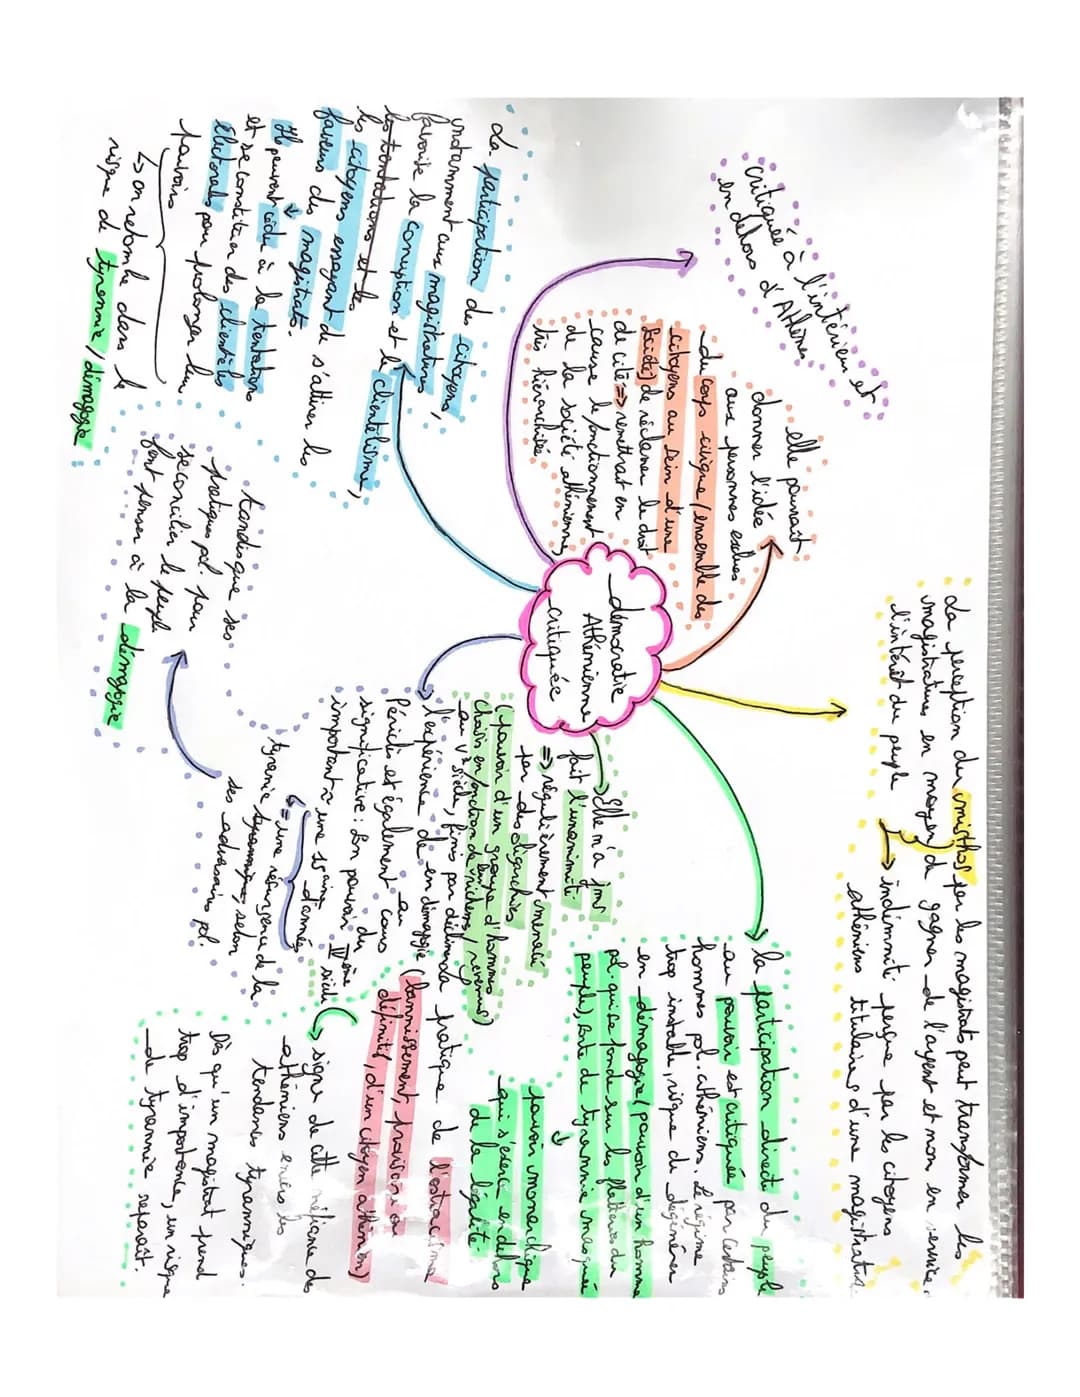 démocratie
Athénienne
critiquée
La perception du misthos par les magistrats peut transformer les
magistratures en moyen de gagner de l'argent et non en service
l'intérêt du peuple
indémnité perçue par les citoyens
athéniens titulaires d'une magistrature
elle pourrait
donner l'idée
aux personnes exclues
du corps civique (ensemble des
citoyens au sein d'une
société) de réclamer le droit
de cité => remettrait en
cause le fonctionnement
de la société athénienne,
très hiérarchisée
critiquée à l'intérieur et
en dehors d'Athènes
la participation directe du peuple
au pouvoir est critiquée par certains
hommes pol. athéniens. Le régime
trop instable, risque de dégénérer
en démagogie (pouvoir d'un homme
pol. qui se fonde sur les flatteries du
peuple), sorte de tyrannie masquée
pouvoir monarchique
qui s'exerce en dehors
de la légalité
Elle n'a jms
fait l'unanimité
=> régulièrement menacée
par des oligarchies
(pouvoir d'un groupe d'hommes
choisis en fonction de leur richesses/revenus)
au Ve siècle, finis par déclin de
l'expérience de en démagogie
Périclès est également au cours
significative: Son pouvoir du
important à une 15aine IVème
d'années siècle
la pratique de l'ostracisme
(bannissement, provisoire ou
définitif, d'un citoyen athénien)
signe de cette méfiance des
athéniens envers les
tendances tyranniques.
Dès qu'un magistrat prend
trop d'importance, un risque
de tyrannie reparaît.
= une résurgence de la
tyrannie, selon
ses adversaires pol.
tandis que ses
pratiques pol. pour
se concilier le peuple
font penser à la démagogie
La participation des citoyens,
notamment aux magistratures,
favorise la corruption et le clientélisme,
les tentations et les
les citoyens essayant de s'attirer les
faveurs des magistrats.
Ils peuvent céder à la tentation
et se constituer des clientèles
électorales pour prolonger leur
pouvoirs
↳ on retombe dans le
risque de tyrannie/démagogie